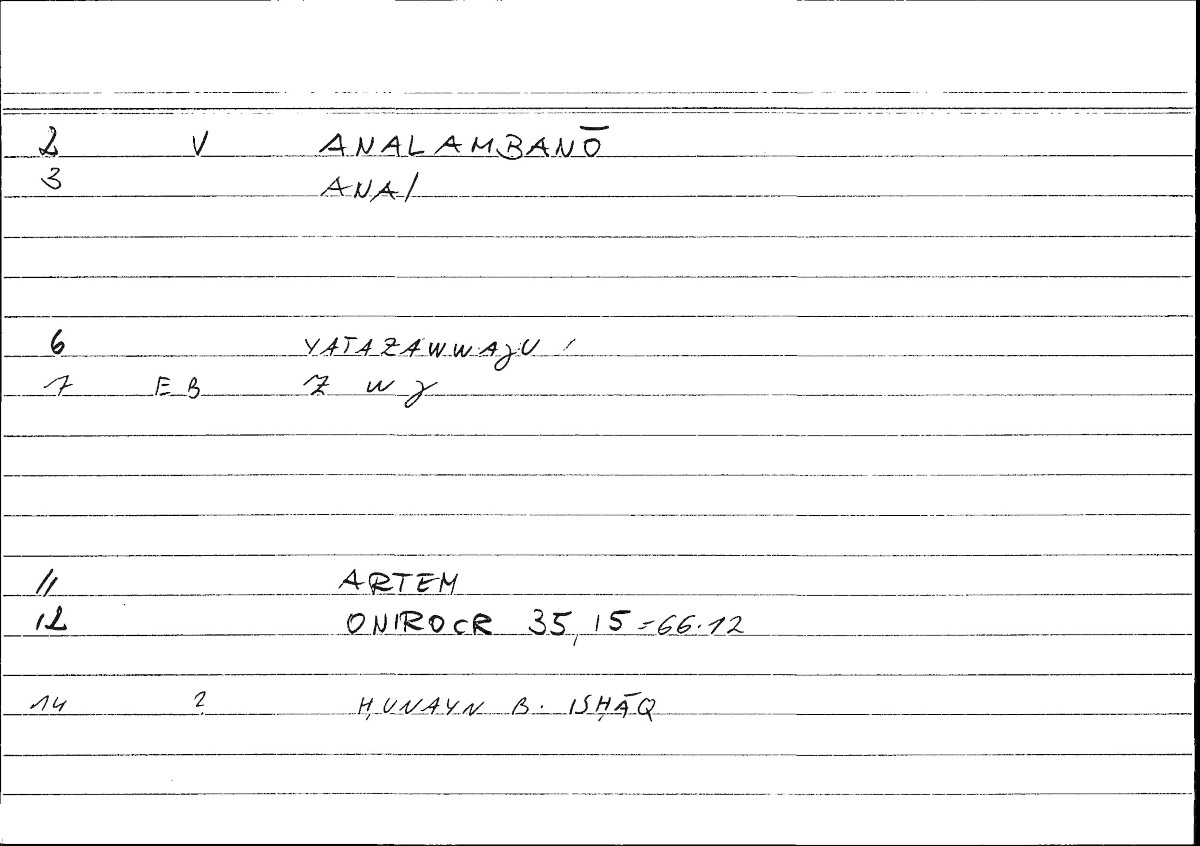 2 V ANALAMBANŌ
3 ANA/
6 YATAZAWWAǧU /
7 EB Z W ǧ
11 ARTEM
12 ONIROCR 35,15=66.12
14 ? ḤUNAYN B. ISḤĀQ